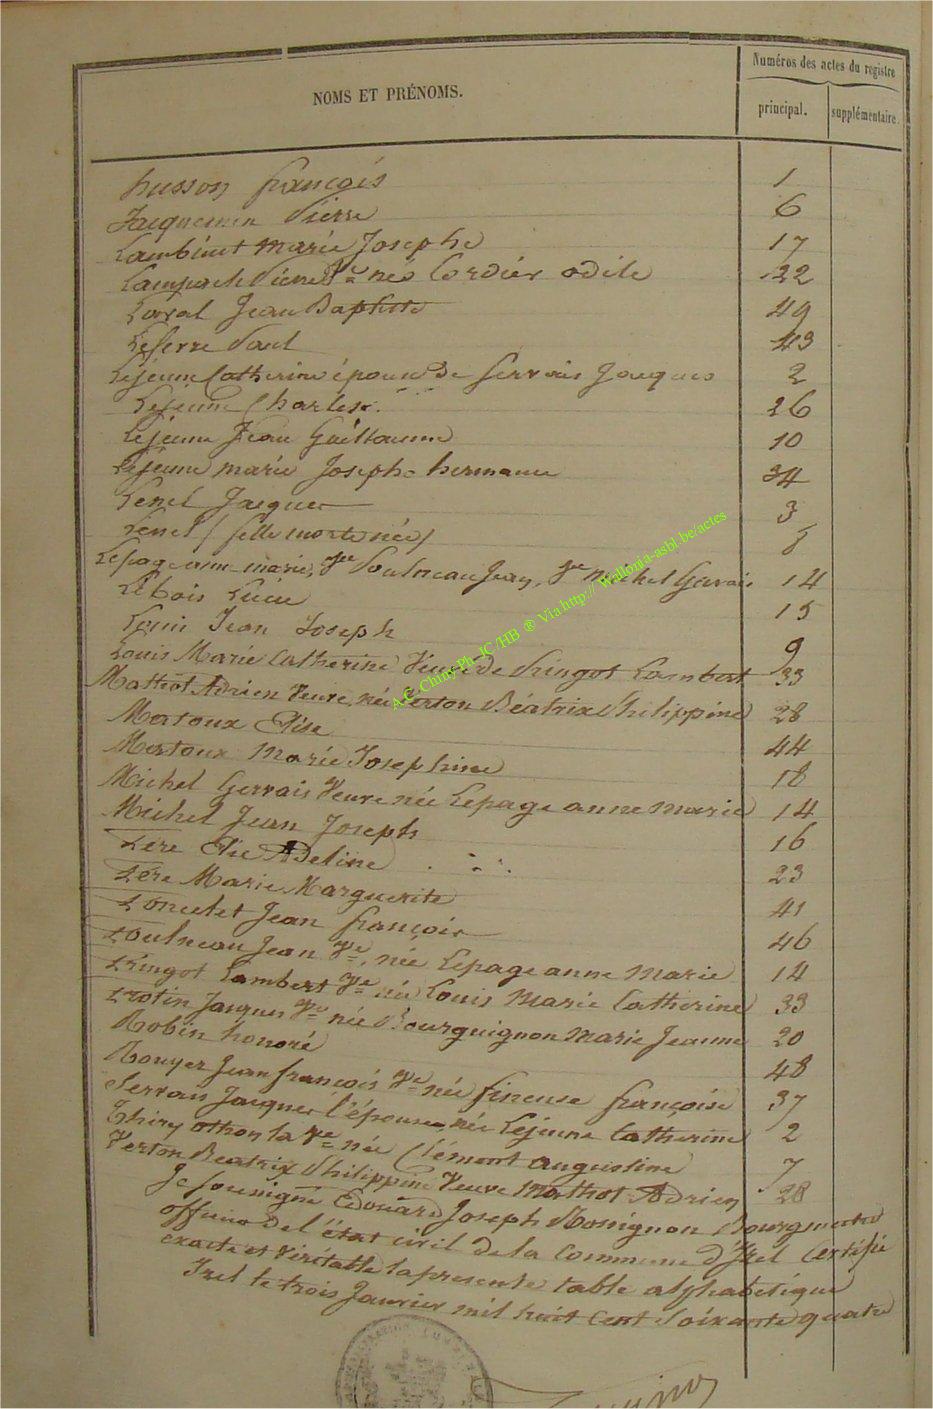 Numéros des actes du registre
NOMS ET PRÉNOMS.
principal. supplémentaire.
husson françois 1
Jacquemin Pierre 6
Lambinet Marie Josephe 17
Pierre Ve née Cordier odile 22
Laval Jean Baptiste 49
Lefevre Paul 43
Lejeune Catherine épouse de Servais Jacques 2
Lejeune Charles 26
Lejeune Jean Guillaume 10
Lejeune marie Josephe hermance 34
Lenel Jacques 3
Lenel (fille morte née) 8
Lepage anne marie, Ve Poulneau Jean, Ve Michel Gervais 14
Lebois Lucie 15
Louis Jean Joseph 9
Louis Marie Catherine Veuve de Pringot Lambert 33
Mathot Adrien Veuve, née Verton Béatrix Philippine 28
Mertoux Elise 44
Mertoux Marie Josephine 18
Michel Gervais Veuve née Lepage anne marie 14
Michel Jean Joseph 16
Père Elie Adeline 23
Père Marie Marguerite 41
Poncelet Jean françois 46
Poulneau Jean Ve, née Lepage anne Marie 14
Pringot Lambert Ve née Louis Marie Catherine 33
Protin Jacques Ve née Bourguignon Marie Jeanne 20
Robin honoré 48
Rouyer Jean françois Ve née fineuse françoise 37
Servais Jacques l'épouse, née Lejeune Catherine 2
Thiry othon la Ve née Clémont augustine 7
Verton Béatrix Philippine Veuve Mathot Adrien 28
Je soussigné Edouard Joseph Rossignon Bourgmestre
officier de l'état civil de la Commune d'Izel Certifie
exacte et véritable la présente table alphabétique
Izel le trois Janvier mil huit cent soixante quatre
A.C. Chiny-Ph-JC/HB ® Via http://Wallonia-asbl.be/actes